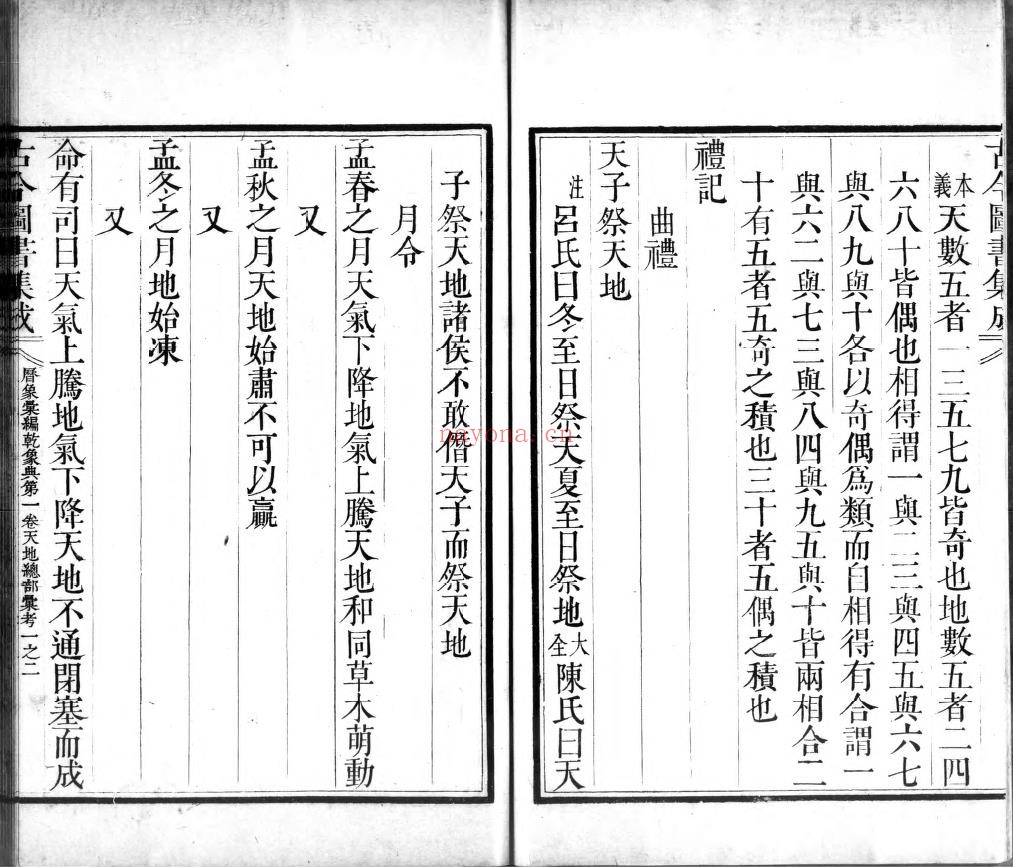 古今圖書集成
本義天數五者一三五七九皆奇也地數五者二四
六八十皆偶也相得謂一與二三與四五與六七
與八九與十各以奇偶爲類而自相得有合謂一
與六二與七三與八四與九五與十皆兩相合二
十有五者五奇之積也三十者五偶之積也
禮記
曲禮
天子祭天地
注呂氏曰冬至日祭天夏至日祭地大全陳氏曰天
子祭天地諸侯不敢僭天子而祭天地
月令
孟春之月天氣下降地氣上騰天地和同草木萌動
又
孟秋之月天地始肅不可以贏
又
孟冬之月地始凍
又
命有司曰天氣上騰地氣下降天地不通閉塞而成
古今圖書集成
曆象彙編乾象典第一卷天地總部彙考一之二
nayona.cn